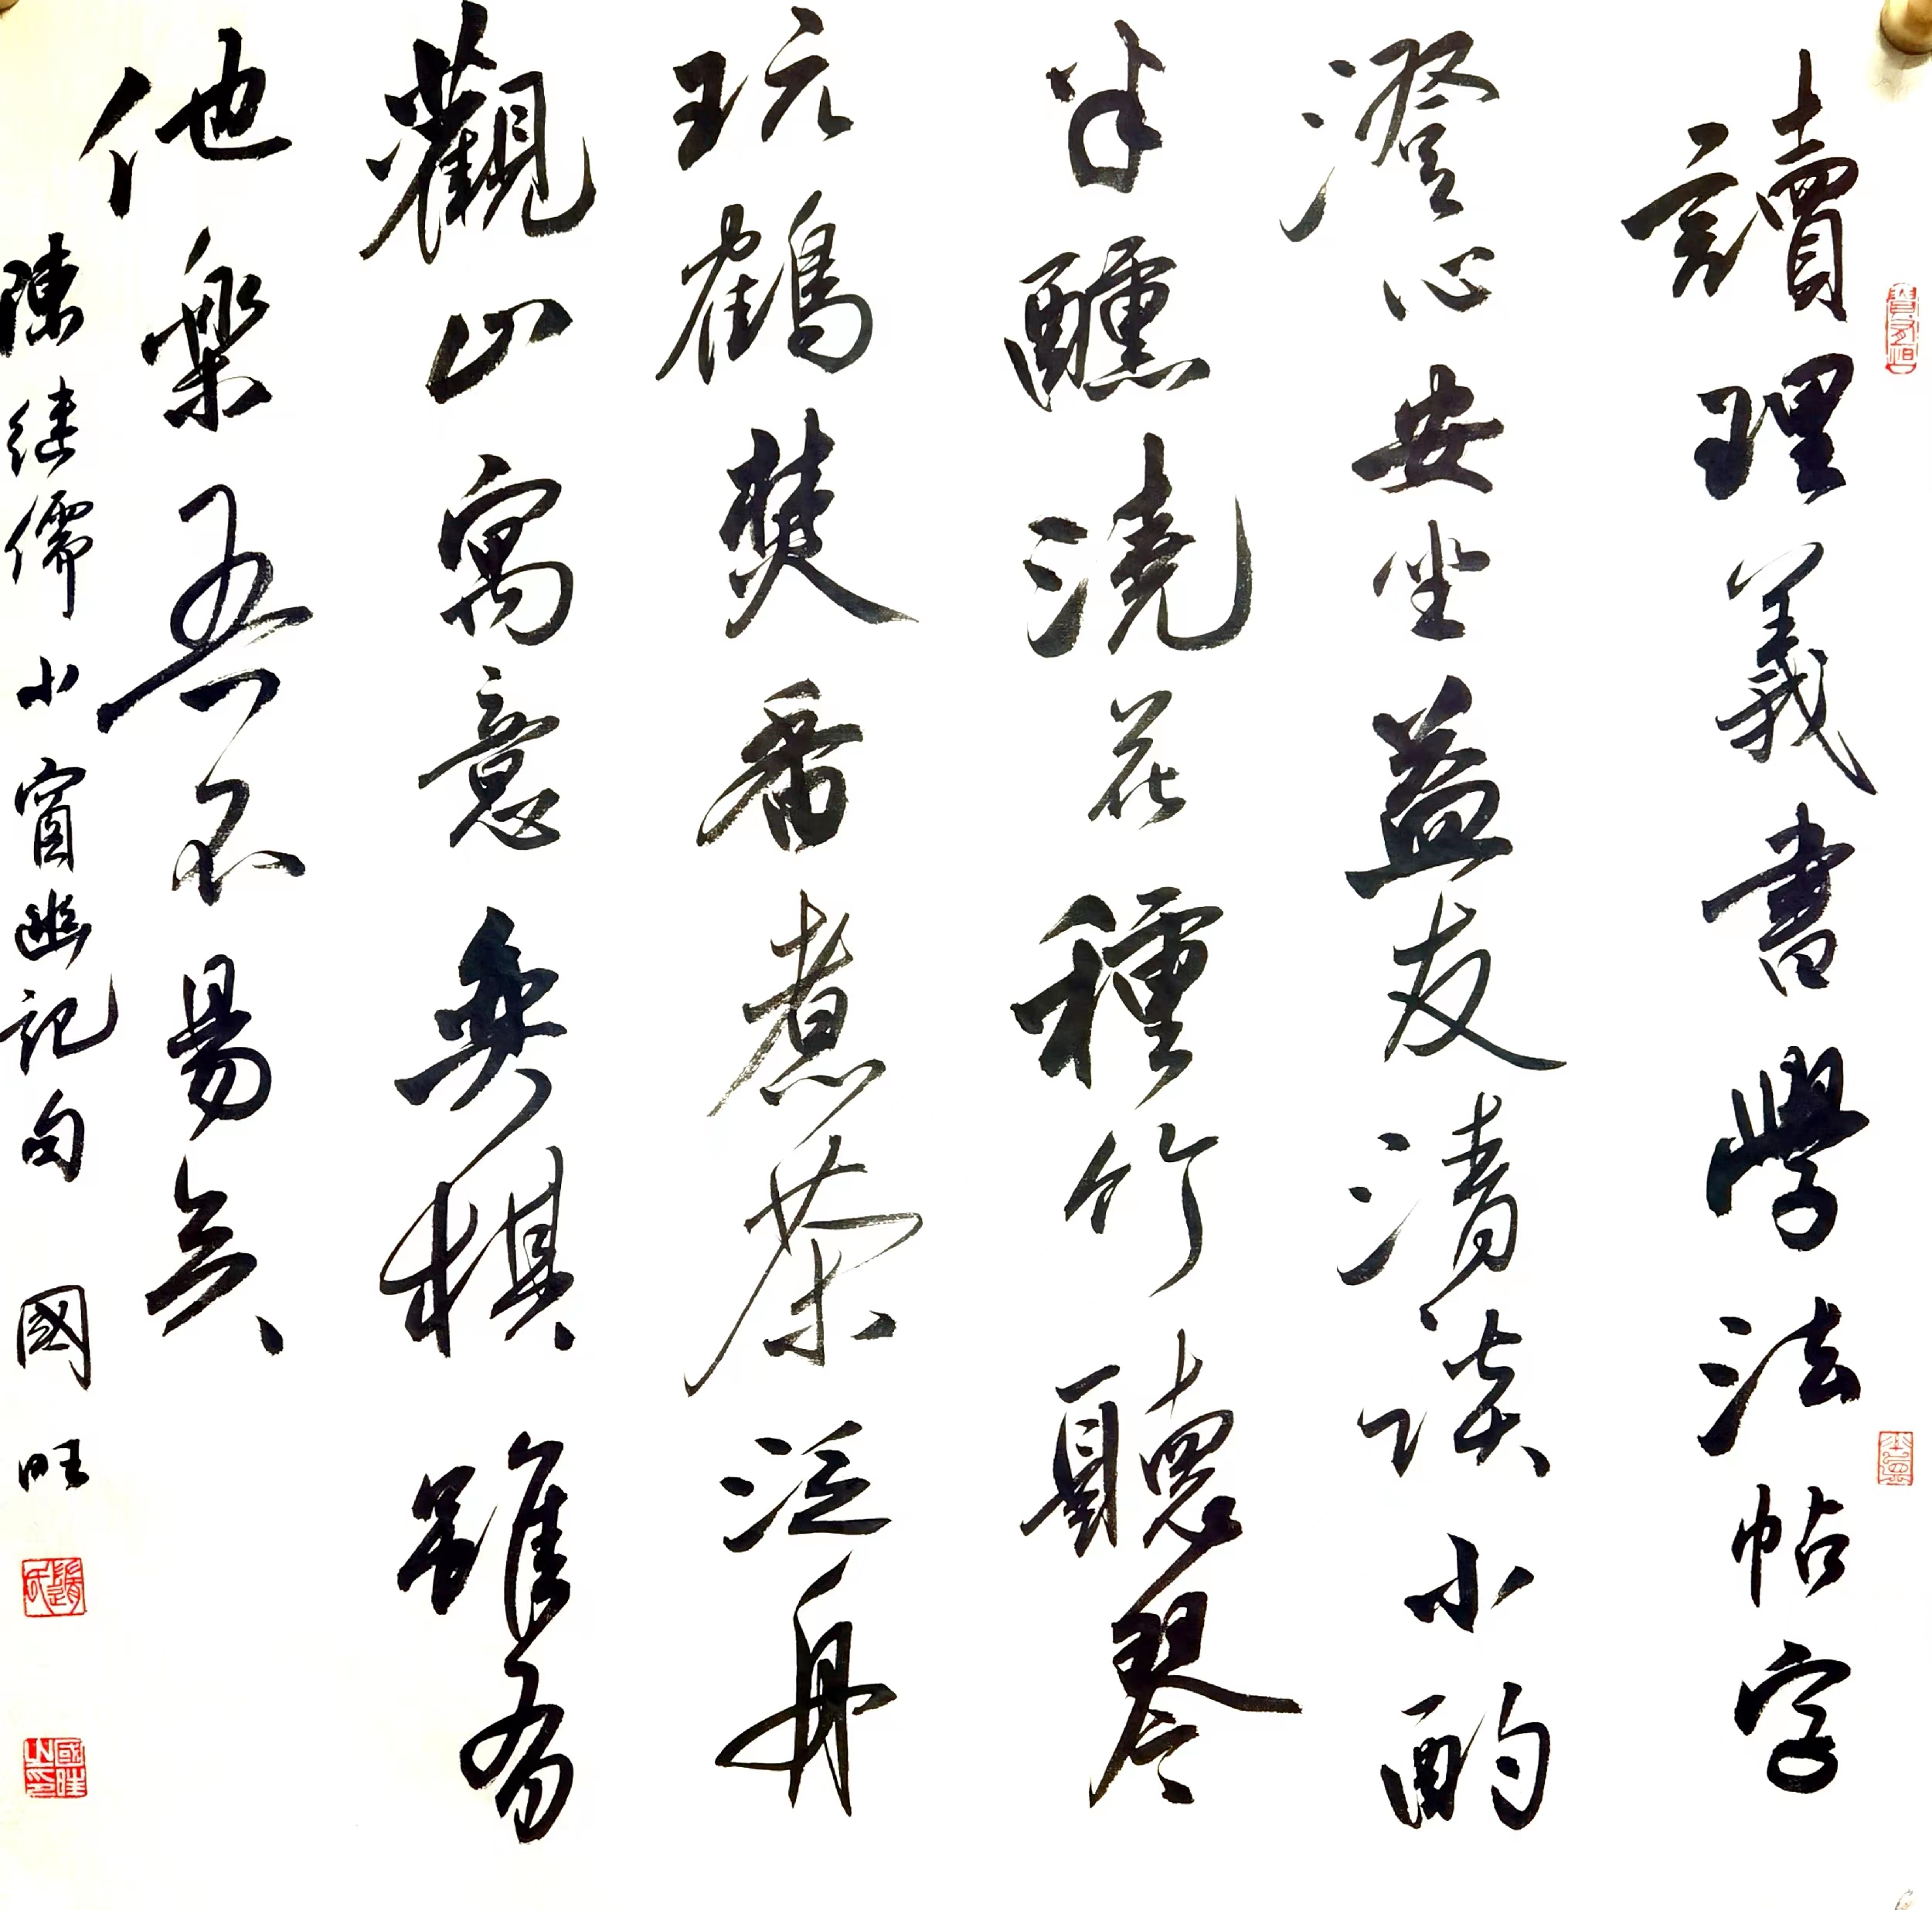 讀理義書學法帖字
澄心安坐益友清談小酌
半醺澆花種竹聽琴
玩鶴焚香煮茶泛舟
觀山寓意奕棋雖有
他樂吾不易矣
陳继儒小窗幽記句 國旺
國旺之印